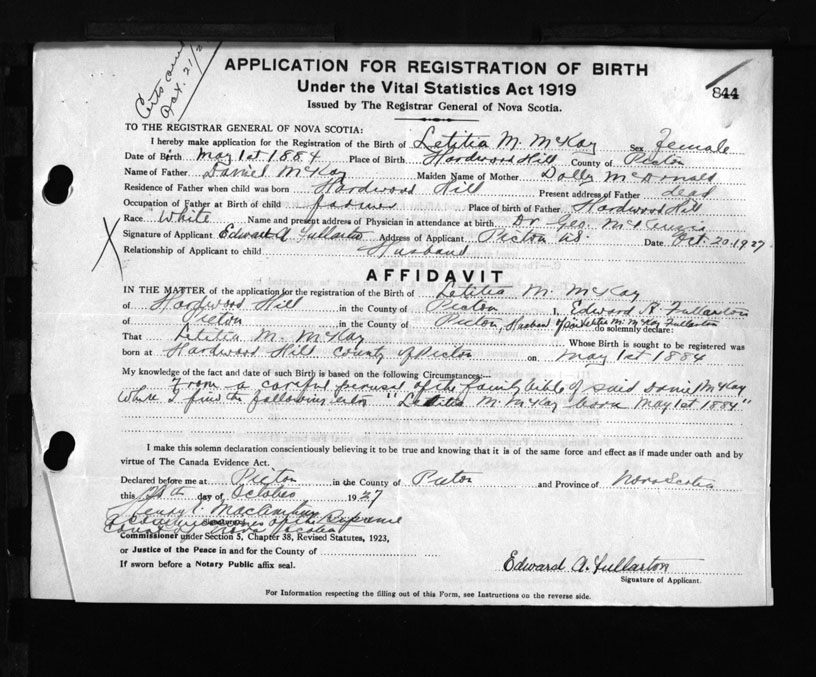 APPLICATION FOR REGISTRATION OF BIRTH
Under the Vital Statistics Act 1919
Issued by The Registrar General of Nova Scotia.
844
TO THE REGISTRAR GENERAL OF NOVA SCOTIA:
I hereby make application for the Registration of the Birth of Letitia M. McKay Sex Female
Date of Birth May 1st 1884 Place of Birth Hardwood Hill County of Pictou
Name of Father Daniel McKay Maiden Name of Mother Dolly McDonald
Residence of Father when child was born Hardwood Hill Present address of Father dead
Occupation of Father at Birth of child farmer Place of birth of Father Hardwood Hill
Race White Name and present address of Physician in attendance at birth Dr. Geo.
Signature of Applicant Edward A Fullarton Address of Applicant Pictou NS. Date Oct. 20. 1927
Relationship of Applicant to child Husband
AFFIDAVIT
IN THE MATTER of the application for the registration of the Birth of Letitia M. McKay
of Hardwood Hill in the County of Pictou I, Edward A. Fullarton
of Pictou in the County of Pictou, Husband of said Letitia M. McKay Fullarton do solemnly declare:
That Letitia M. McKay Whose Birth is sought to be registered was
born at Hardwood Hill County of Pictou on May 1st 1884
My knowledge of the fact and date of such Birth is based on the following Circumstances:
From a careful perusal of the family bible of said Daniel McKay
Where I find the following entry "Letitia M. McKay born May 1st 1884"
I make this solemn declaration conscientiously believing it to be true and knowing that it is of the same force and effect as if made under oath and by
virtue of The Canada Evidence Act.
Declared before me at Pictou in the County of Pictou and Province of Nova Scotia
this 20th day of October 1927
Henry
A Commissioner of the Supreme
Court of Nova Scotia
Commissioner under Section 5, Chapter 38, Revised Statutes, 1923,
or Justice of the Peace in and for the County of
If sworn before a Notary Public affix seal.
Edward A. Fullarton
Signature of Applicant.
For Information respecting the filling out of this Form, see Instructions on the reverse side.